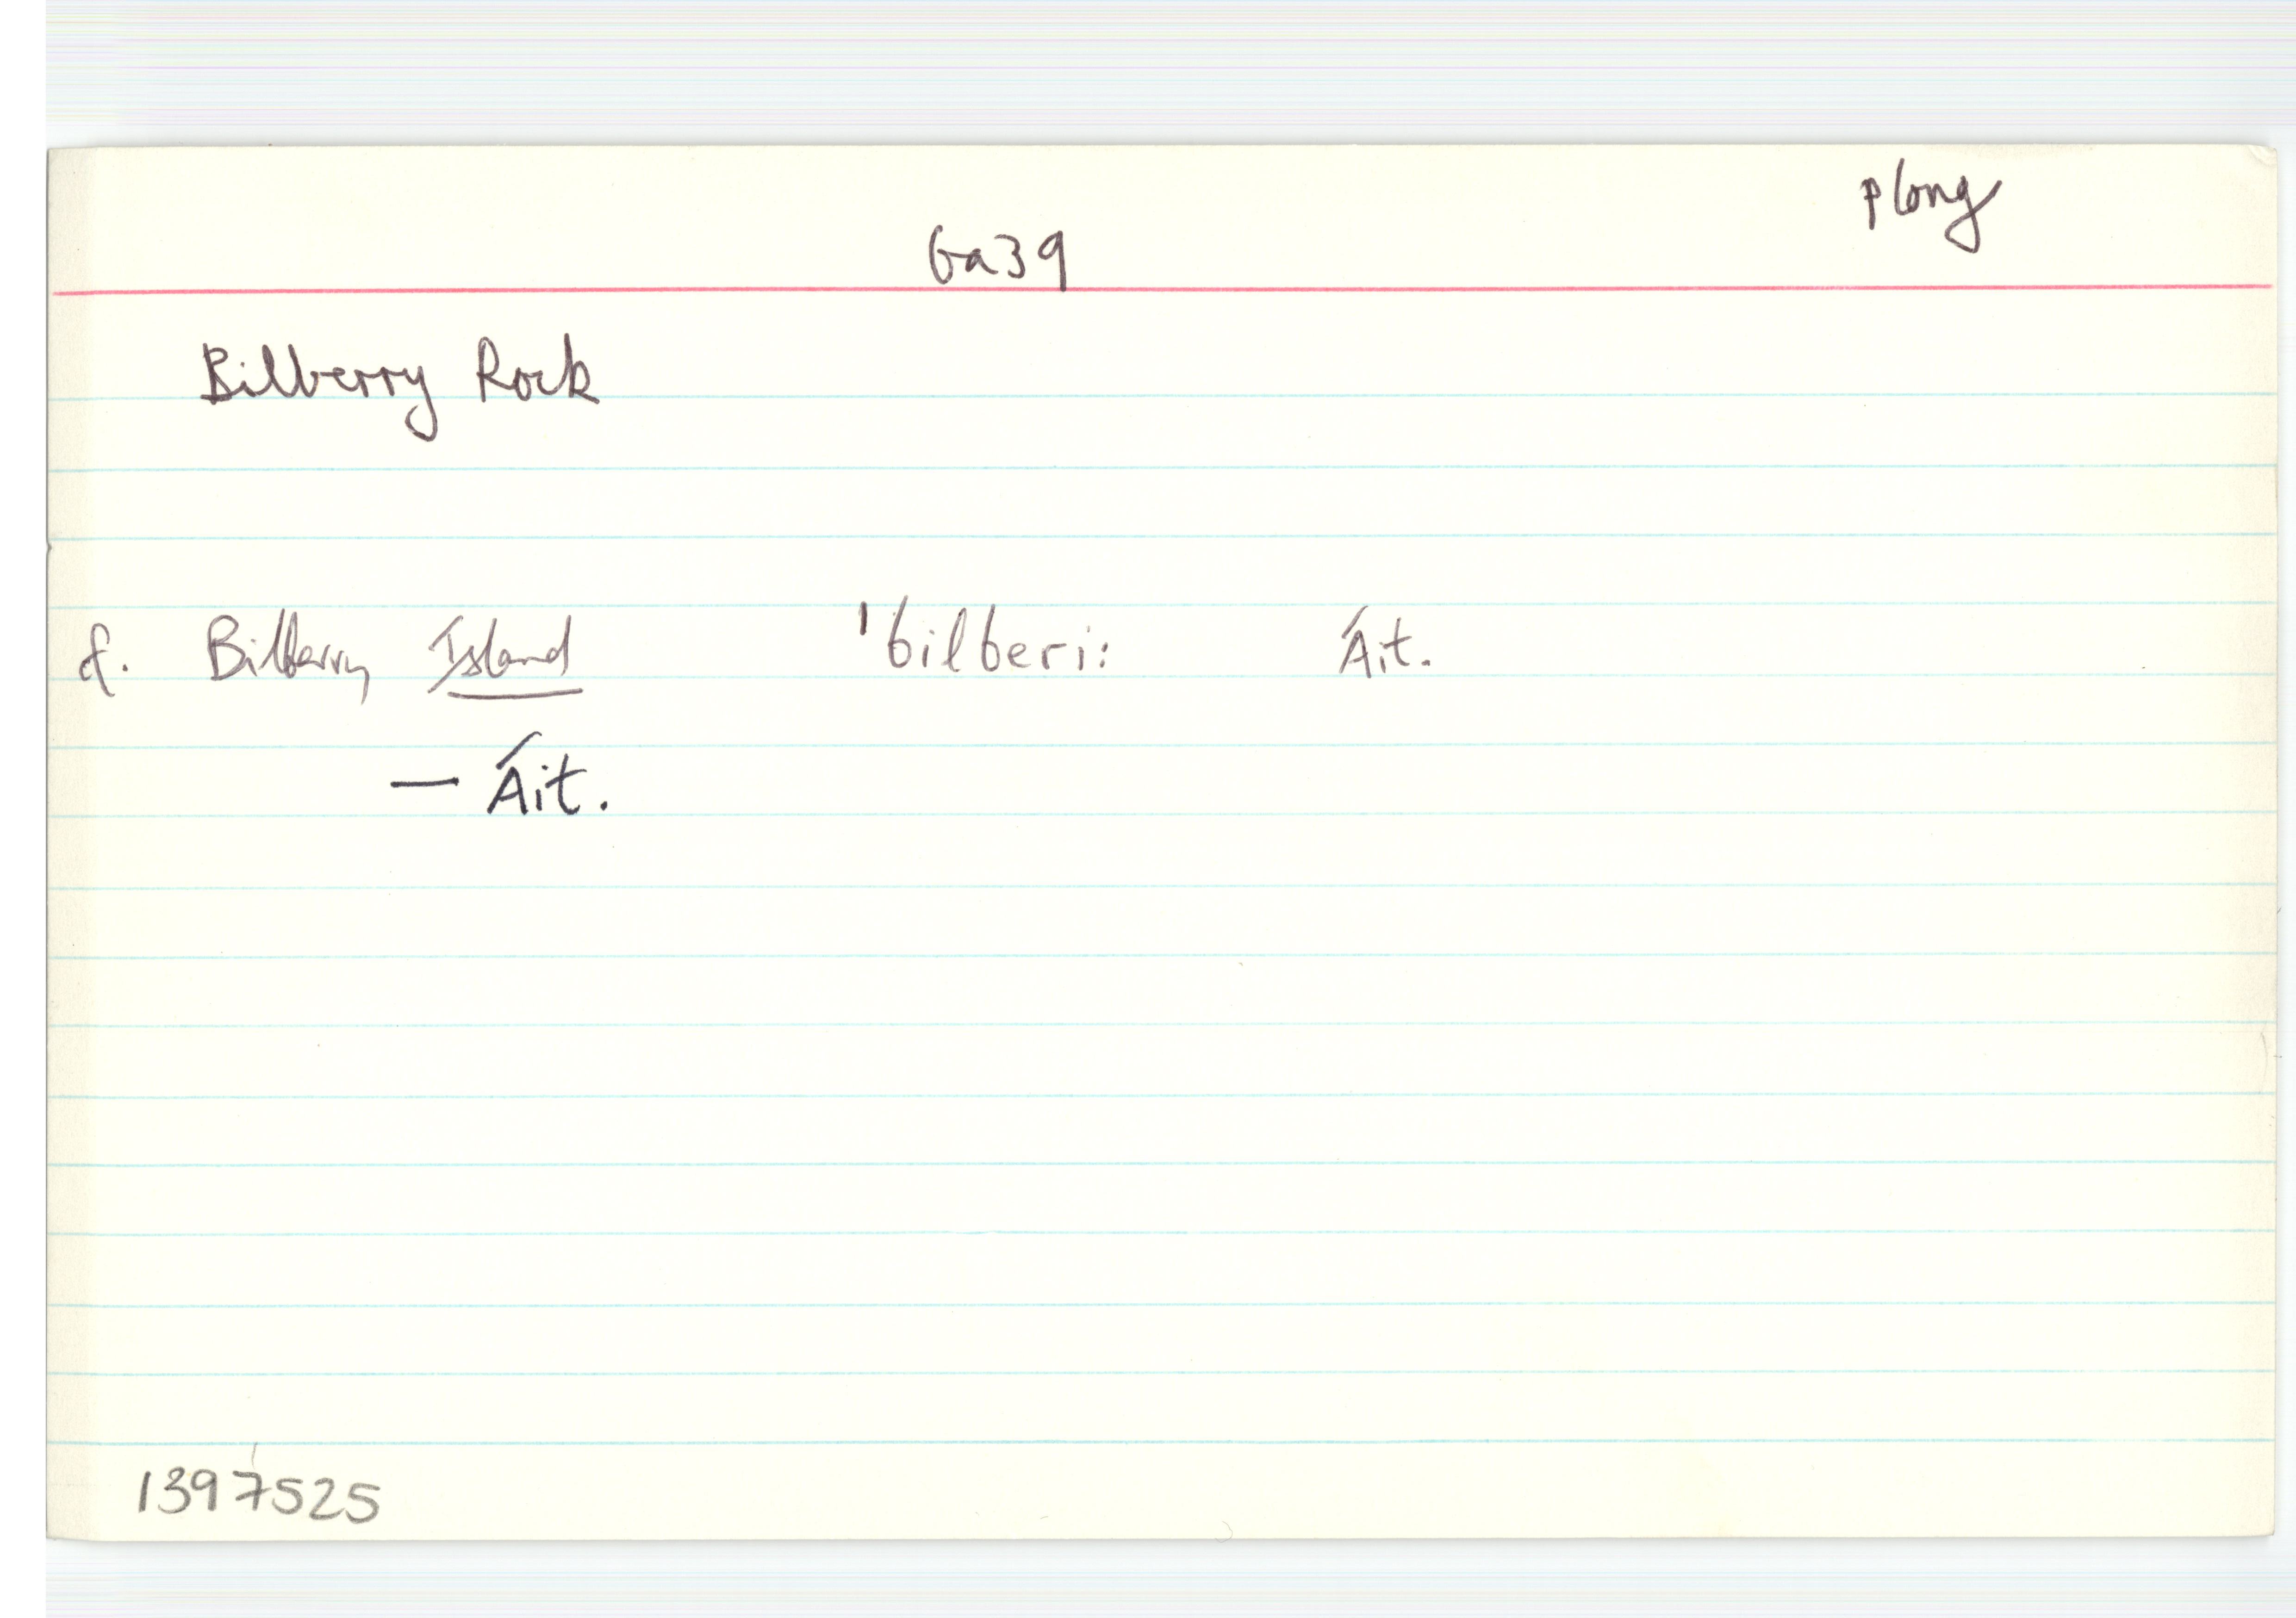 plong
6a39
Bilberry Rock
cf. Bilberry Island 'bilberi: Áit.
— Áit.
1397525